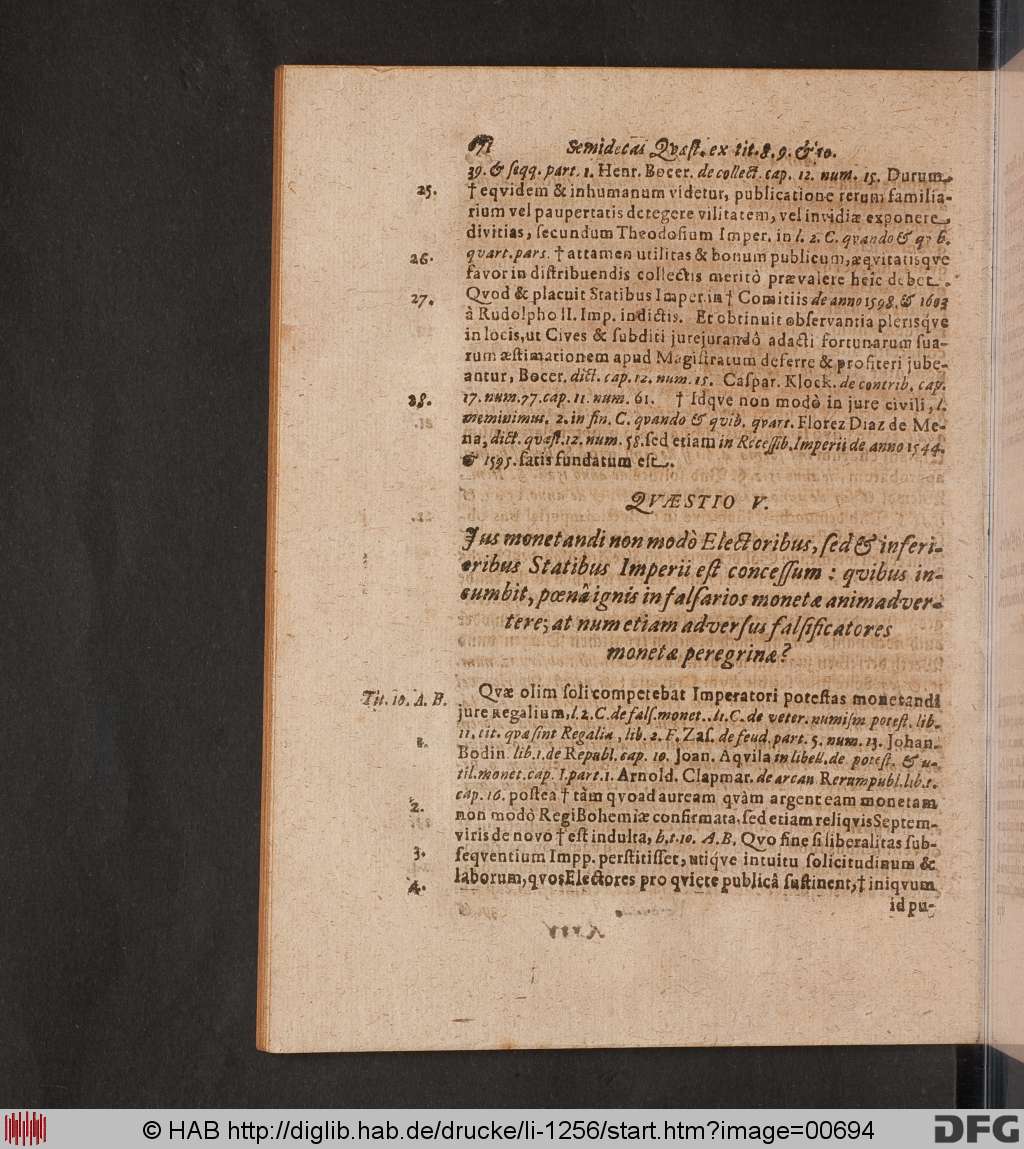 Semidecas Qvæst. ex tit. 8. 9. & 10.
39. & seqq. part. 1. Henr. Bocer. de collect. cap. 12. num. 15. Durum
25. † eqvidem & inhumanum videtur, publicatione rerum familia-
rium vel paupertatis detegere vilitatem, vel invidiæ exponere
divitias, secundum Theodosium Imper. in l. 2. C. qvando & qvib.
26. qvart. pars. † attamen utilitas & bonum publicum, æqvitatisqve
favor in distribuendis collectis meritò prævalere heic debet.
27. Qvod & placuit Statibus Imper. in † Comitiis de anno 1598. & 1603
à Rudolpho II. Imp. indictis. Et obtinuit observantia plerisqve
in locis, ut Cives & subditi jurejurandô adacti fortunarum sua-
rum æstimationem apud Magistratum deferre & profiteri jube-
antur, Bocer. dict. cap. 12. num. 15. Caspar. Klock. de contrib. cap.
28. 17. num. 77. cap. 11. num. 61. † Idqve non modò in jure civili, l.
meminimus. 2. in fin. C. qvando & qvib. qvart. Florez Diaz de Me-
na, dict. qvæst. 12. num. 58. sed etiam in Recessib. Imperii de anno 1544.
& 1595. satis fundatum est.
QVÆSTIO V.
Jus monetandi non modò Electoribus, sed & inferi-
oribus Statibus Imperii est concessum: qvibus in-
cumbit, pœnâ ignis in falsarios monetæ animadver-
tere; at num etiam adversus falsificatores
monetæ peregrinæ?
Tit. 10. A. B. Qvæ olim soli competebat Imperatori potestas monetandi
jure Regalium, l. 2. C. de fals. monet. l. 1. C. de veter. numism potest. lib.
11. tit. qvæ sint Regalia, lib. 2. F. Zas. de feud. part. 5. num. 13. Johan.
1. Bodin. lib. 1. de Republ. cap. 10. Joan. Aqvila in libell. de potest. & u-
til. monet. cap. 1. part. 1. Arnold. Clapmar. de arcan Rerumpubl. lib. 1.
2. cap. 16. postea † tàm qvoad auream qvàm argenteam monetam
non modò Regi Bohemiæ confirmata, sed etiam reliqvis Septem-
viris de novo † est indulta, b. t. 10. A. B. Qvo fine si liberalitas sub-
3. seqventium Impp. perstitisset, utiqve intuitu solicitudinum &
4. laborum, qvos Electores pro qviete publicâ sustinent, † iniqvum
id pu-
© HAB http://diglib.hab.de/drucke/li-1256/start.htm?image=00694
DFG